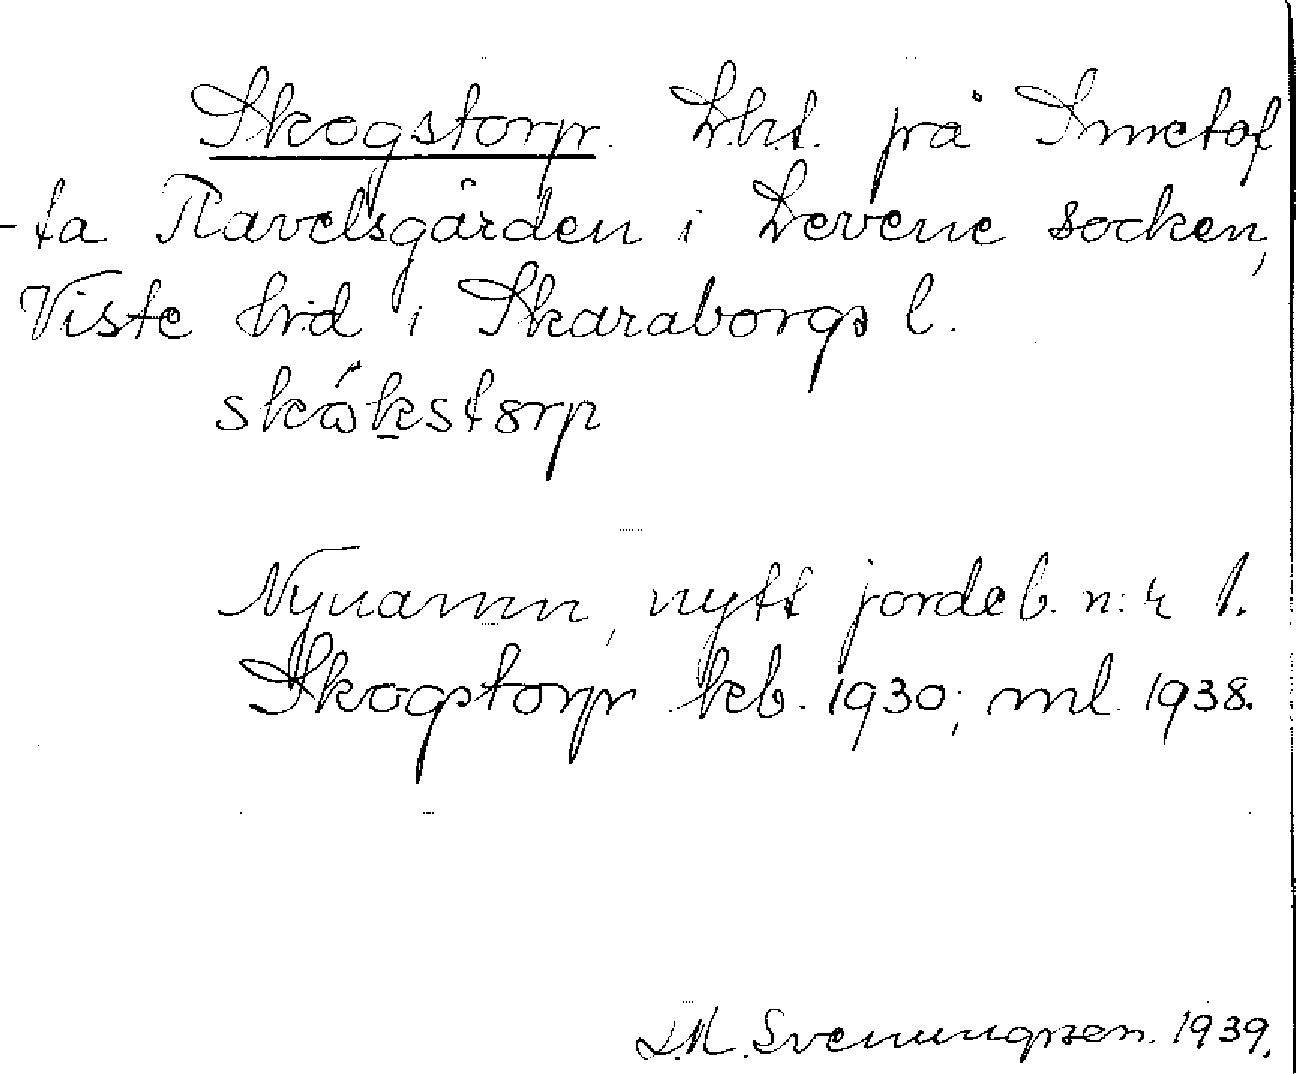 Skogstorp. Lht. på Smetof
-ta Ravelsgården i Levene socken,
Viste hrd i Skaraborgs l.
skåkstorp
Nynamn, nytt jordeb. n:r 1.
Skogstorp kb. 1930; ml 1938.
D.M. Svenungsson. 1939.